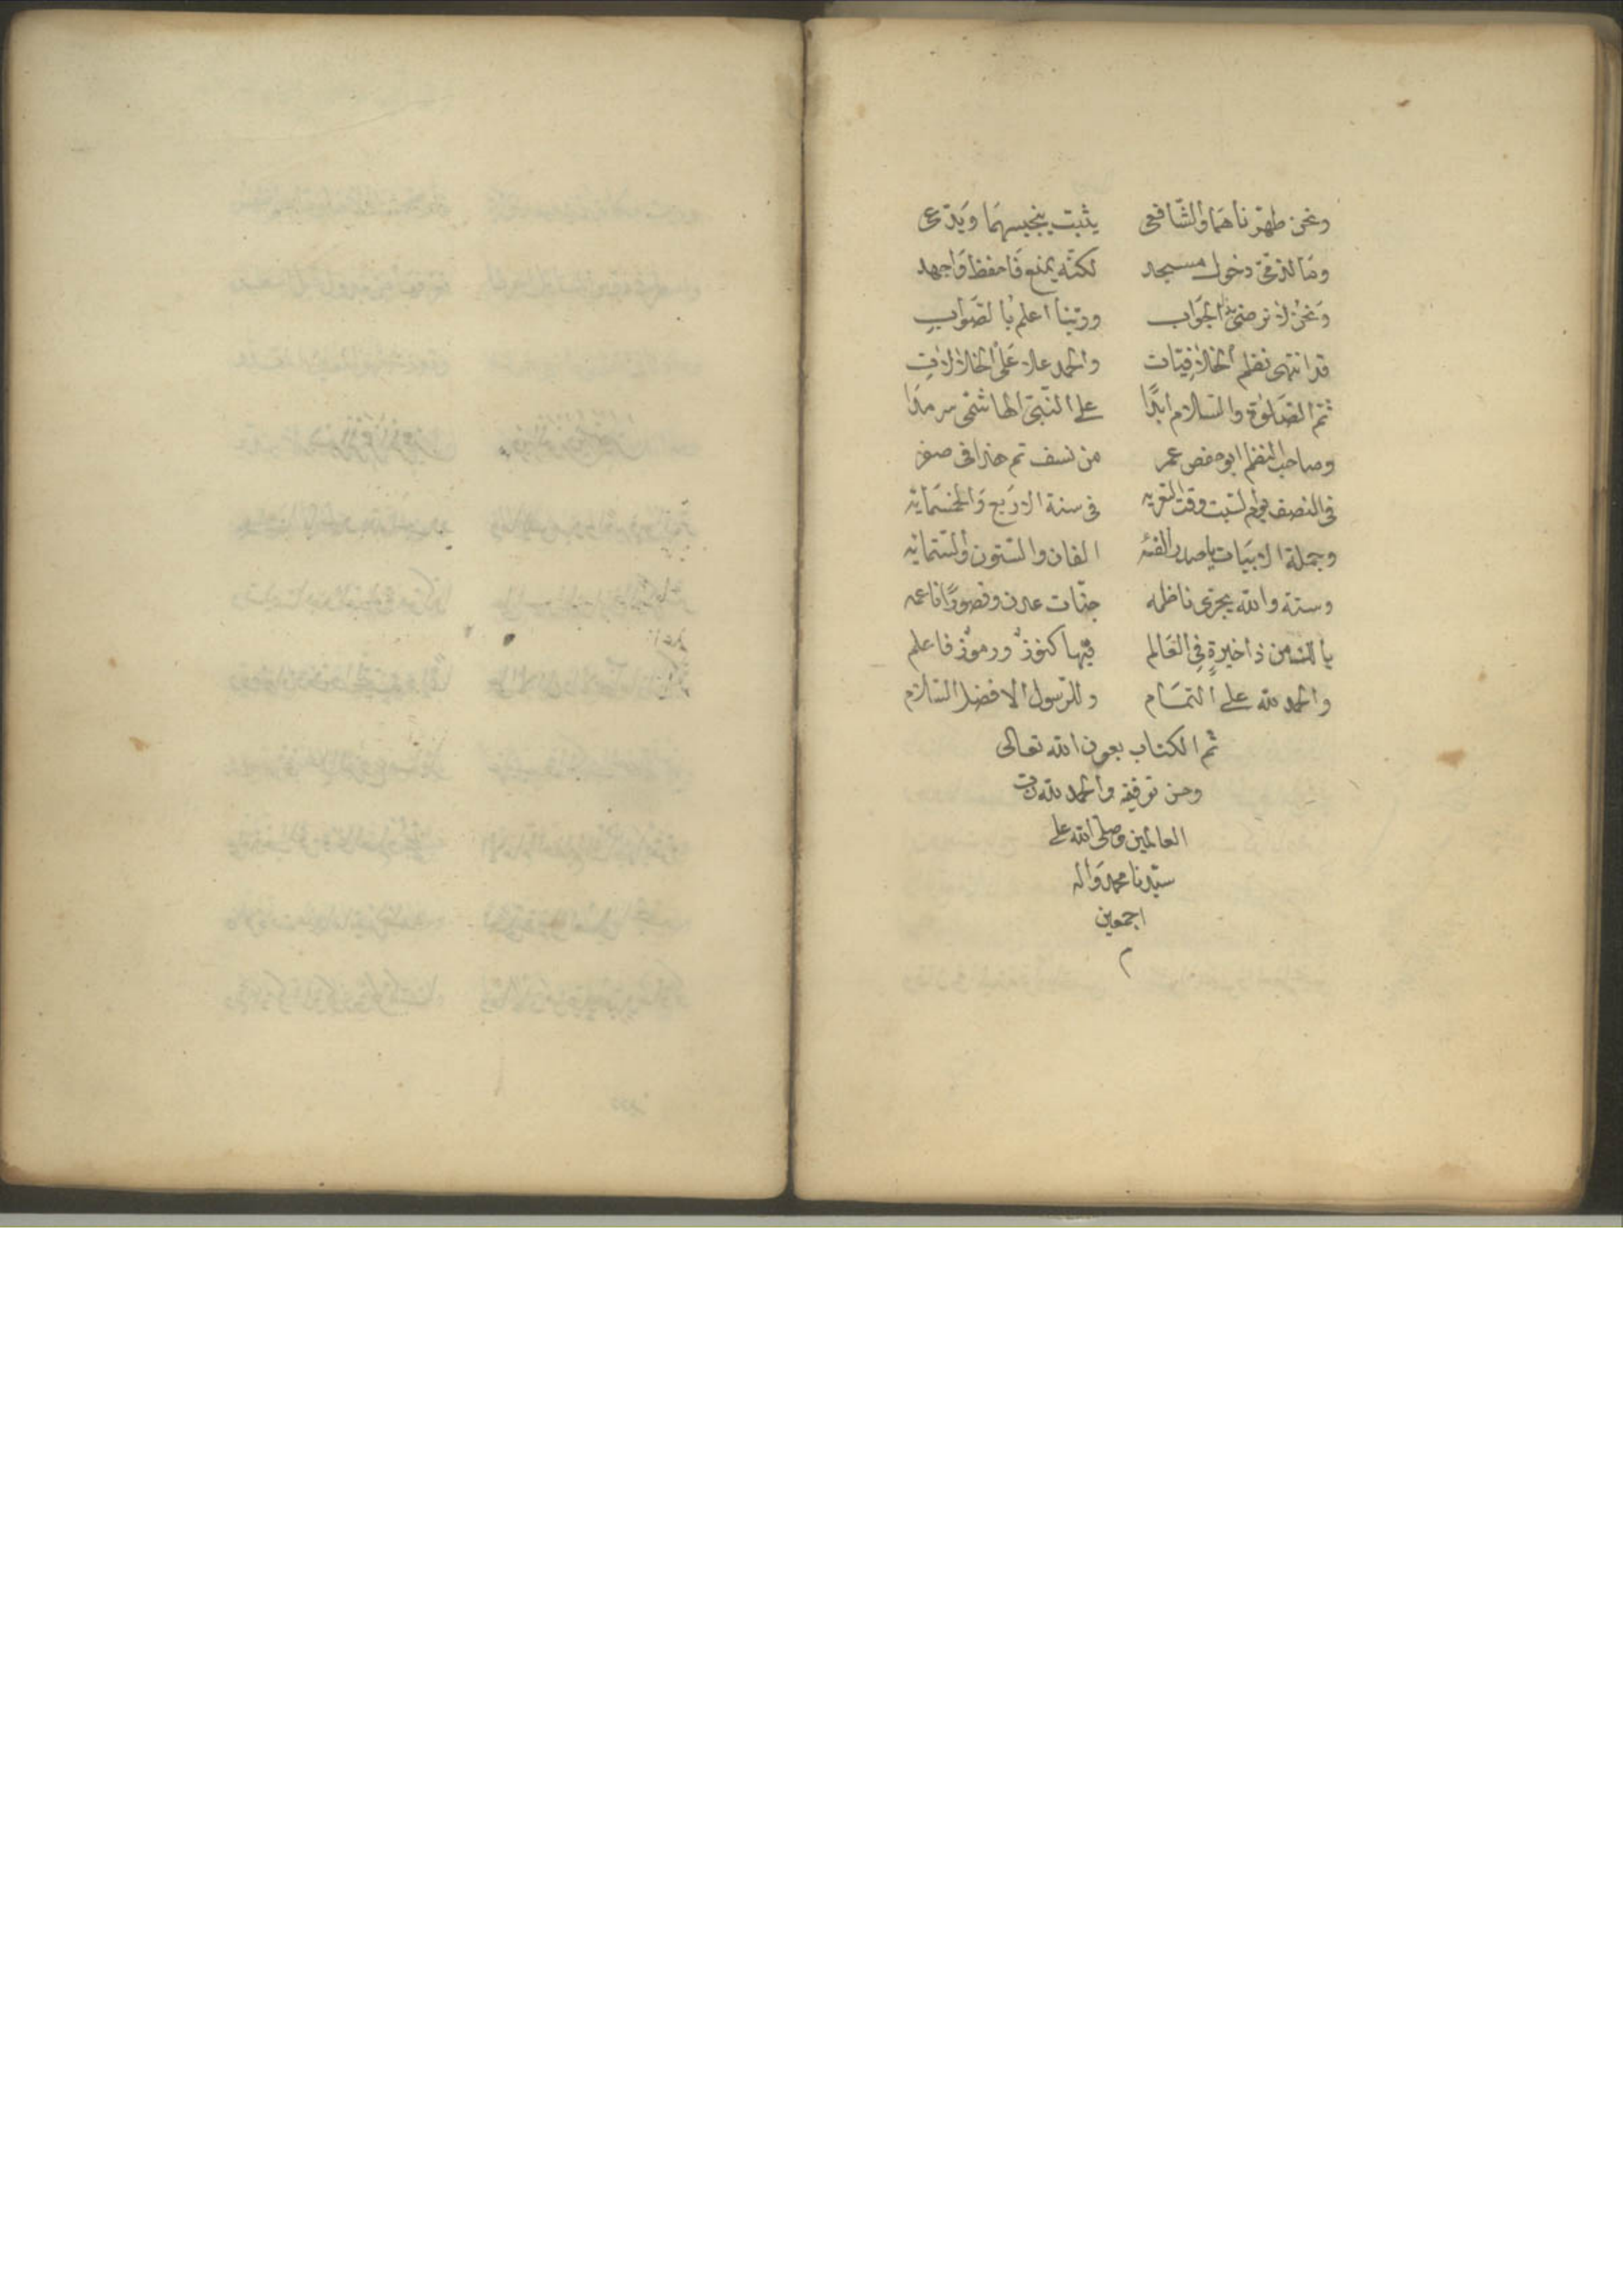 ونحن طهّرناهما والشّافعى يثبت بنجيسهما ويدّعى
وما لذمّىّ دخول مسجد لكنّه يمنع فاحفظ واجهد
ونحن لا نرضى بذا الجواب وربّنا اعلم بالصّواب
قد انتهى نظم الخلافيّات والحمد على
ثمّ الصّلوة والسّلام ابدًا على النّبىّ الهاشمى سرمدًا
وصاحب النظم ابو حفص عمر من نسف تم هذا فى صفر
فى النصف يوم السبت وقت فى سنة الاربع والخمسمائه
وجملة الابيات يا صدر الفئه الفان والستّون والستمائه
وستة والله يجزى ناظمه جنّات عدن وقصورًا ناعمه
يا لك من ذاخيرةٍ فى العالم فيها كنوزٌ ورموزٌ فاعلم
والحمد لله على التمام وللرّسول الافضل السّلام
ثم الكتاب بعون الله تعالى
وحسن توفيقه والحمد لله رب
العالمين وصلى الله على
سيّدنا محمد واله
اجمعين
م